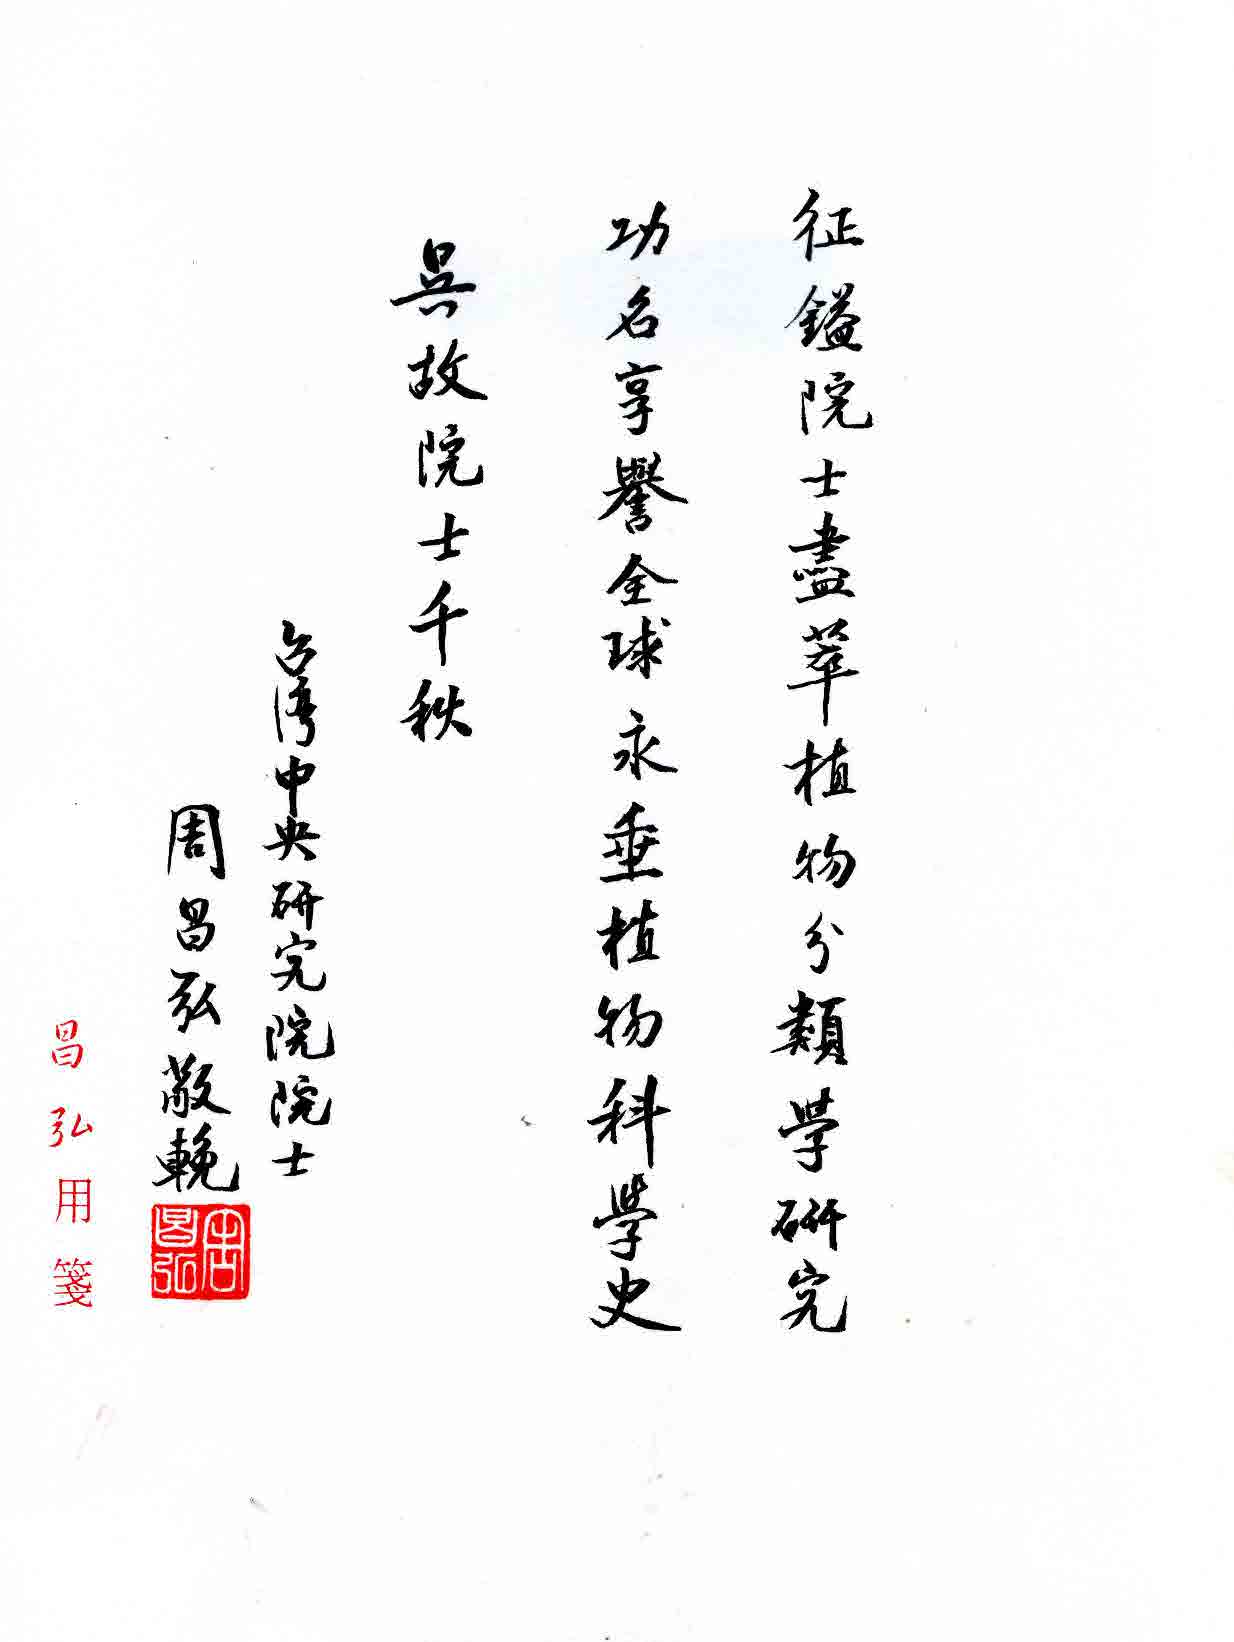 征鎰院士盡萃植物分類學研究
功名享譽全球永垂植物科學史
吳故院士千秋
台灣中央研究院院士
周昌弘敬輓
周昌弘
昌弘用箋